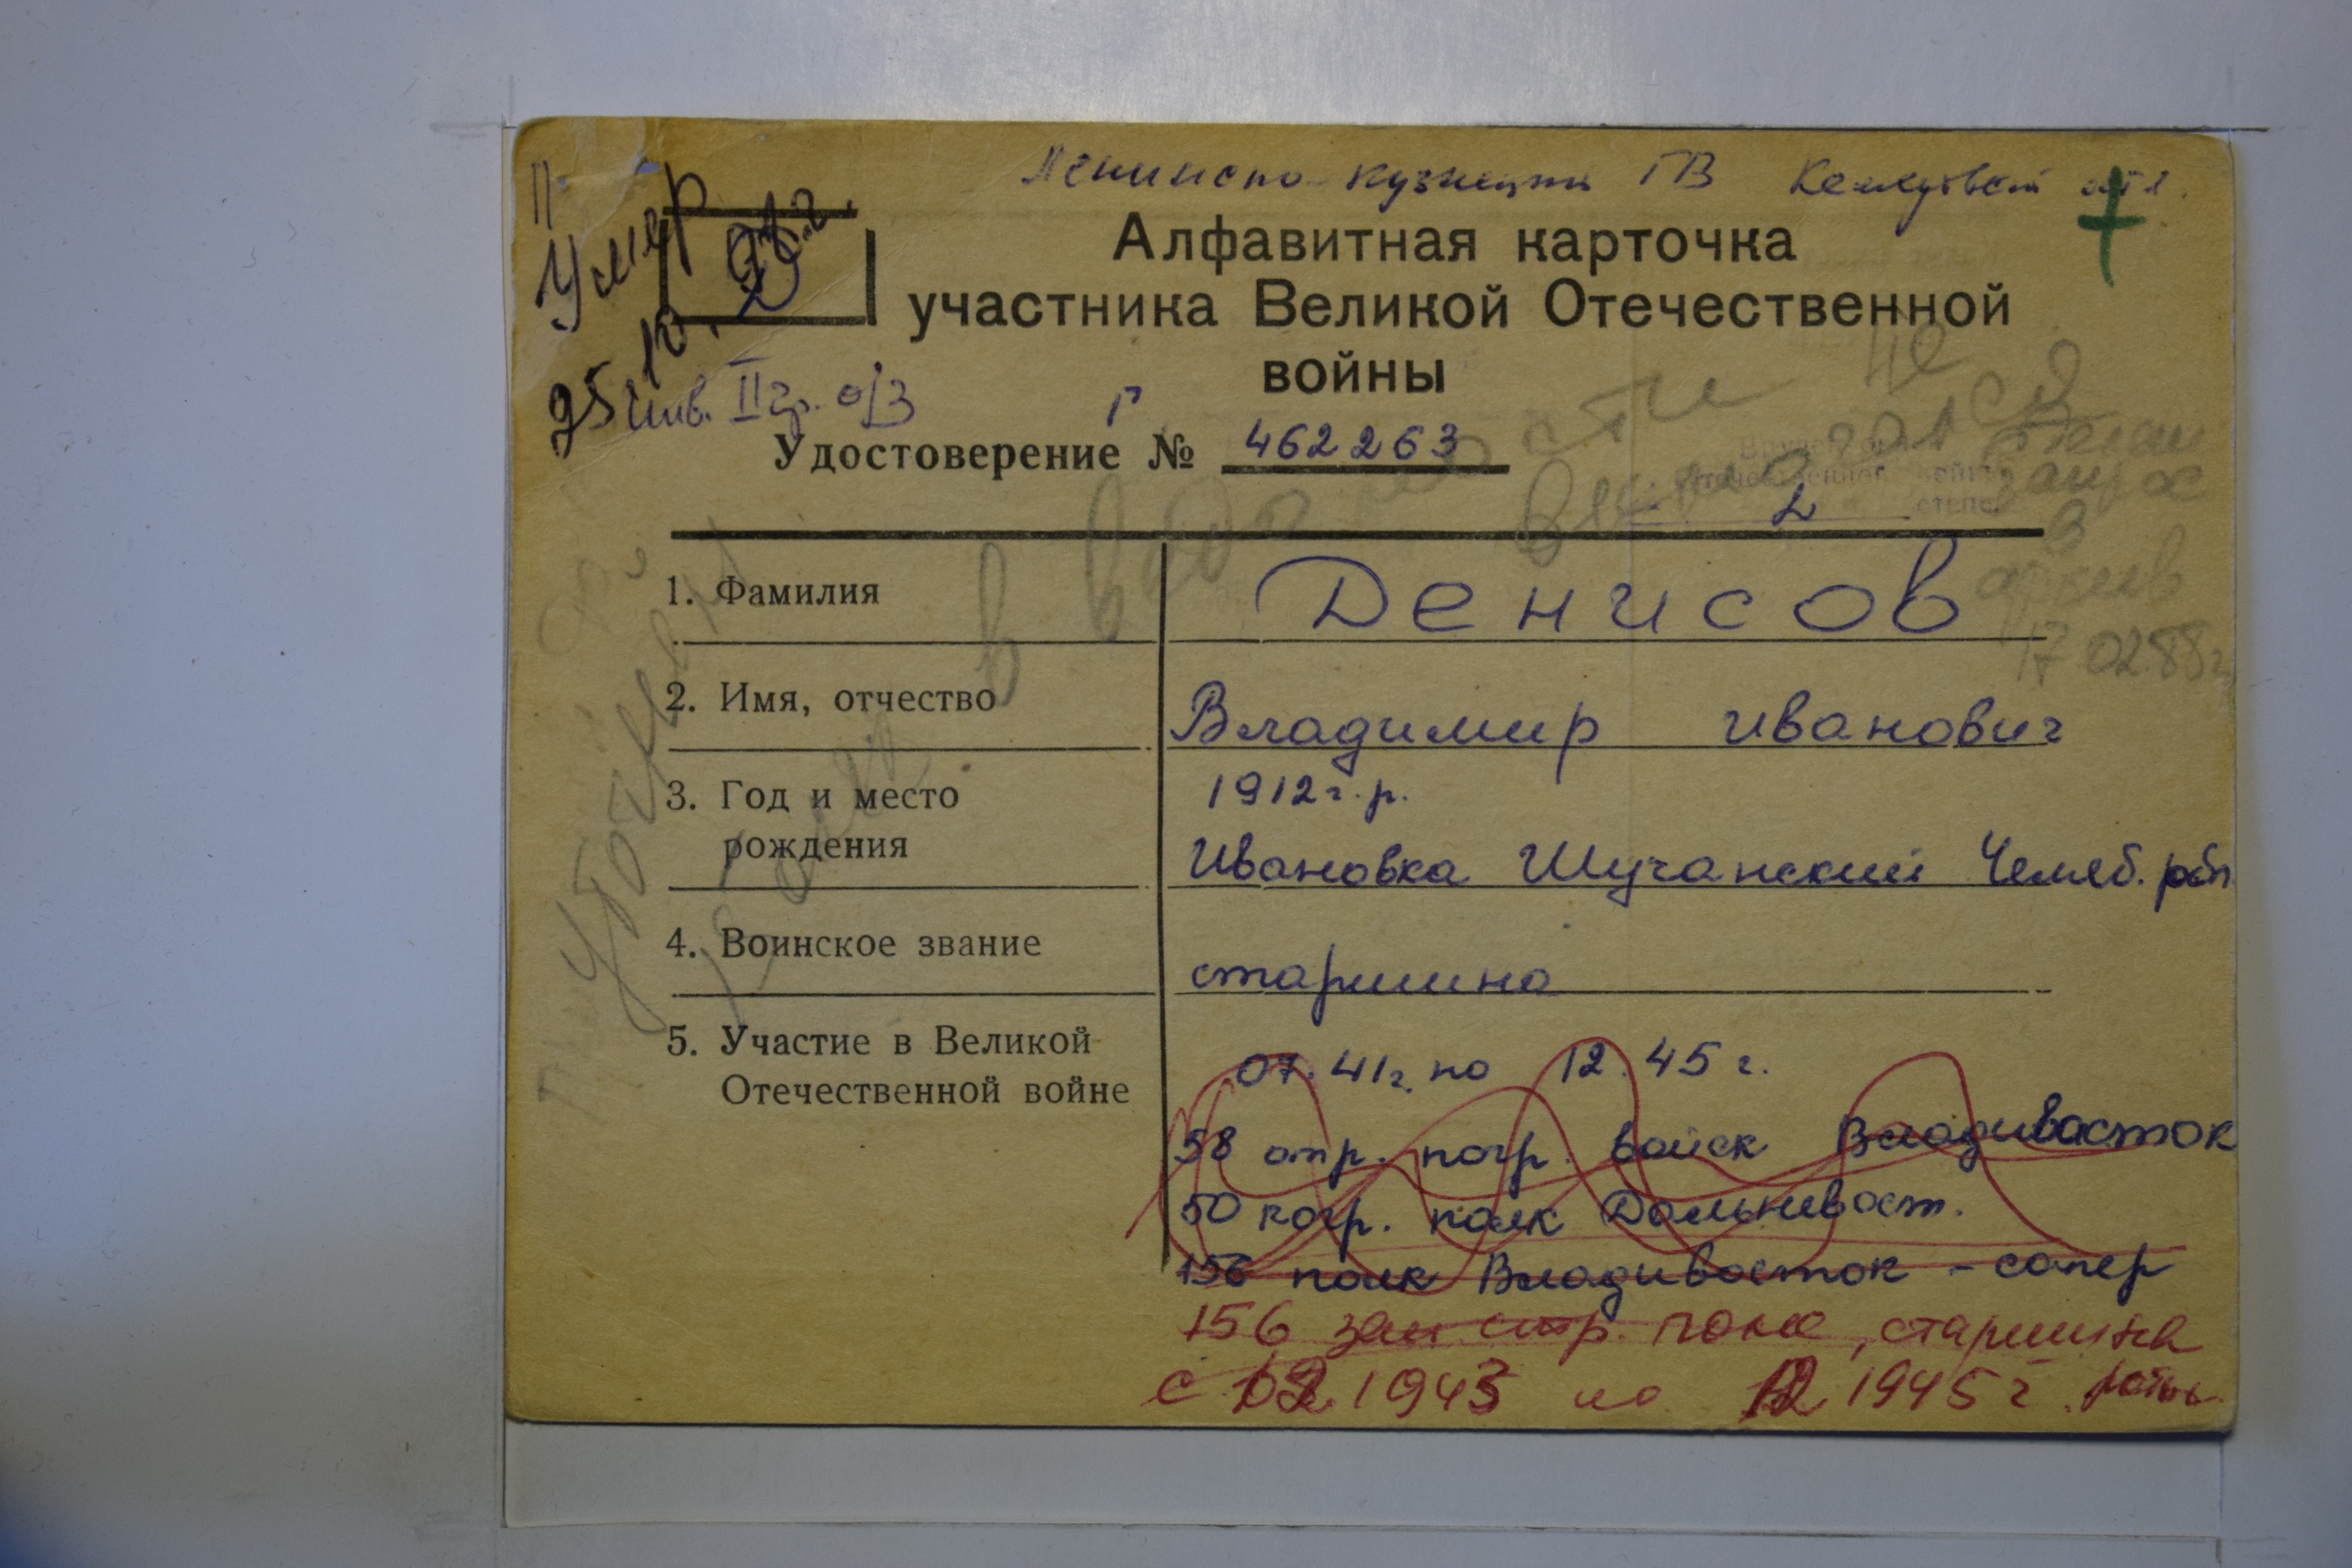 Ленинско-Кузнецкий ГВ Кемеровской обл.
Умер
25.10.
Алфавитная карточка
участника Великой Отечественной
войны
инв. II гр. о/з
Г
Удостоверение № 462263
Отечественной войны
2 степени
в ведомости не
архив
17.02.88г.
1. Фамилия Денисов
2. Имя, отчество Владимир Иванович
3. Год и место 1912 г.р.
рождения Ивановка Шучанский Челяб. обл
4. Воинское звание старшина
5. Участие в Великой 07.41г. по 12.45 г.
Отечественной войне
58 отр. погр. войск Владивосток
50 погр. полк Дальневост.
156 полк Владивосток - сапер
156 зап стр. полк, старшина
с 02 1943 по 12 1945 г. роты